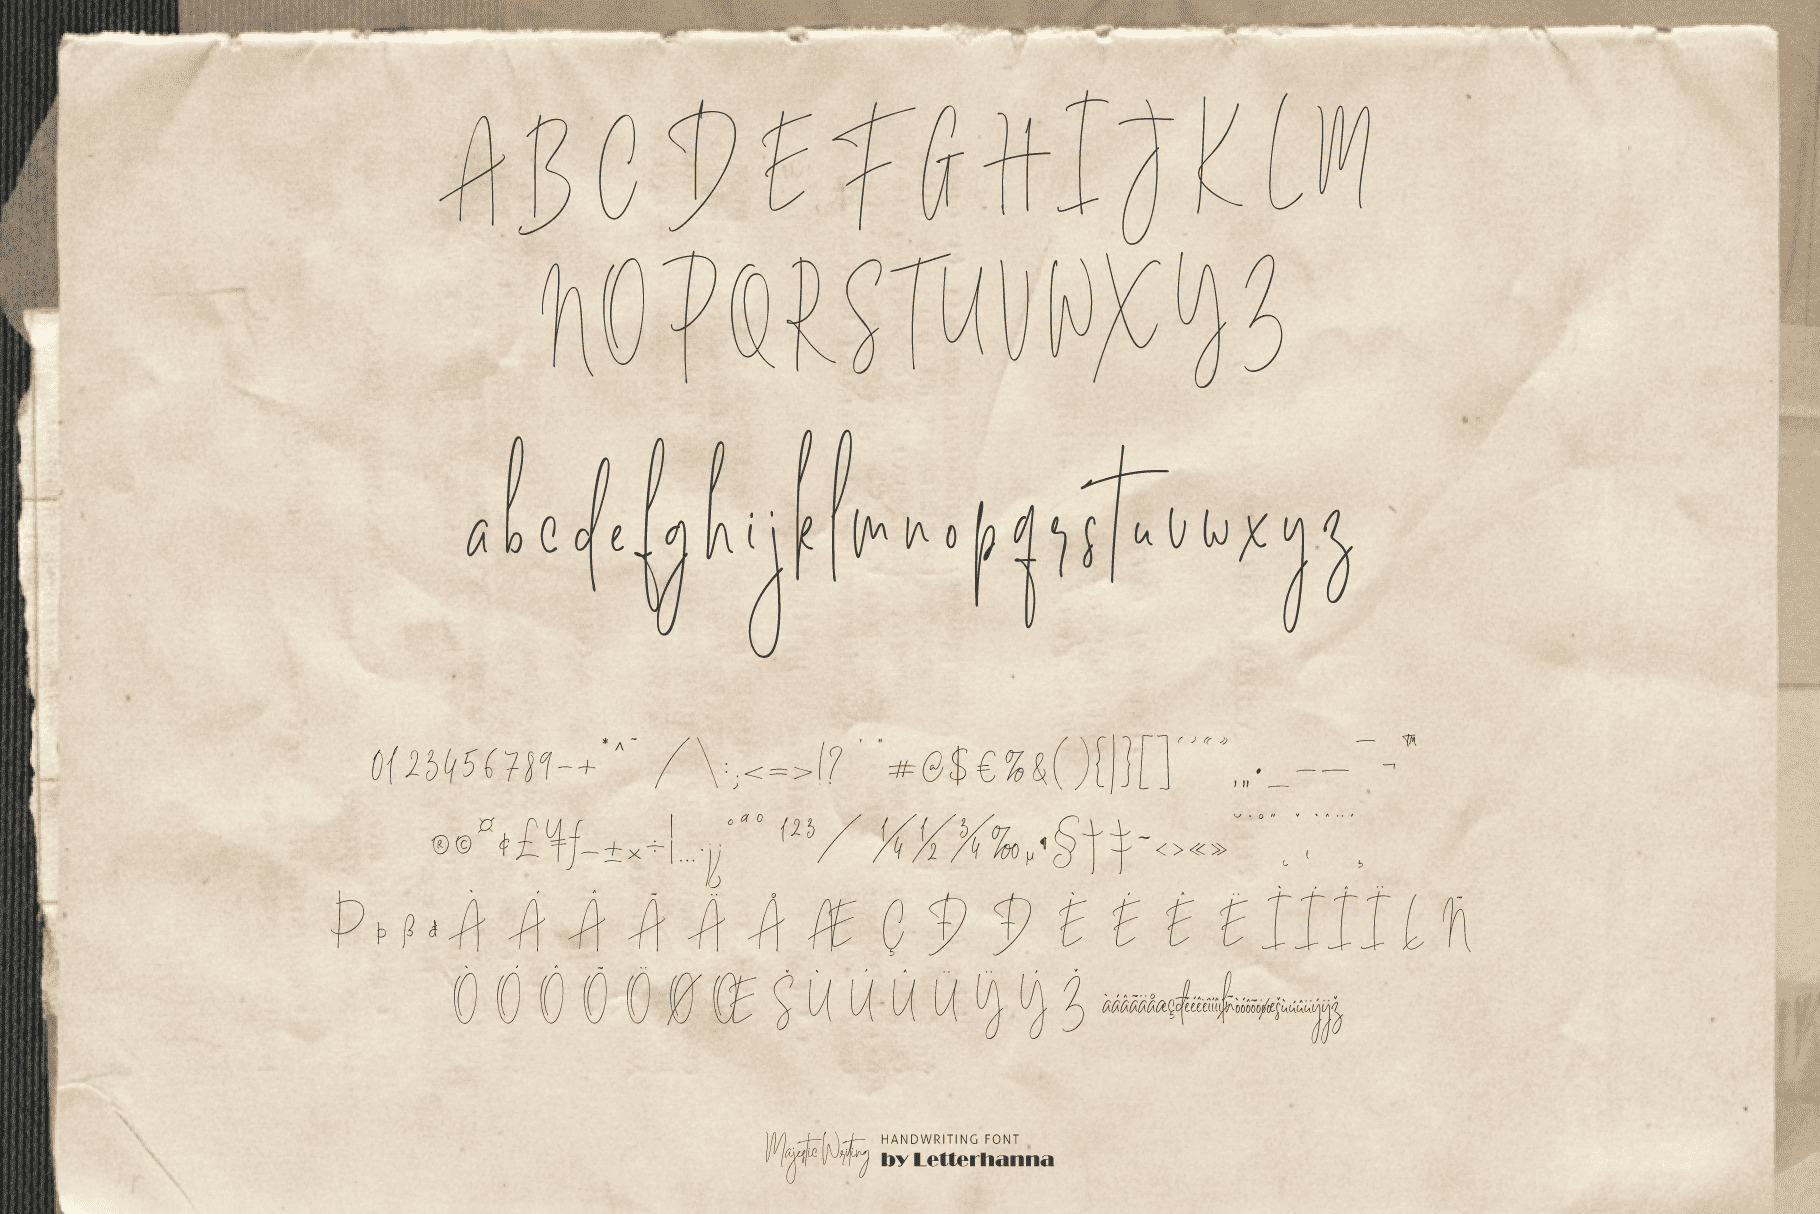 A B C D E F G H I J K L M
N O P Q R S T U V W X Y Z
a b c d e f g h i j k l m n o p q r s t u v w x y z
0 1 2 3 4 5 6 7 8 9 - + * ^ ~ / \ : ; < = > ! ? ' " # @ $ € % & ( ) { | } [ ] ‘ ’ “ ” ‚ „ • _ – — ¯ ¬ ™
® © ¤ ¢ £ ¥ ƒ − ± × ÷ | … · ¡ ¿ ° ª º 1 2 3 / ¼ ½ ¾ ‰ µ ¶ § † ‡ ~ ‹ › « »
Þ þ ß đ À Á Â Ã Ä Å Æ Ç Đ Ð È É Ê Ë Ì Í Î Ï Ł Ñ
Ò Ó Ô Õ Ö Ø Œ Š Ù Ú Û Ü Ÿ Ý Ž à á â ã ä å æ ç đ è é ê ë ì í î ï ł ñ ò ó ô õ ö ø œ š ù ú û ü ý ÿ ž
Majestic Writing HANDWRITING FONT
by Letterhanna